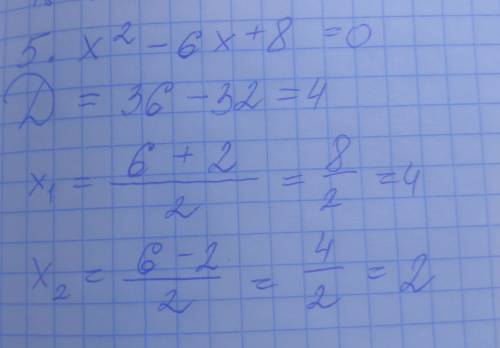 5. x² - 6x + 8 = 0
D = 36 - 32 = 4
x₁ = (6 + 2)/2 = 8/2 = 4
x₂ = (6 - 2)/2 = 4/2 = 2